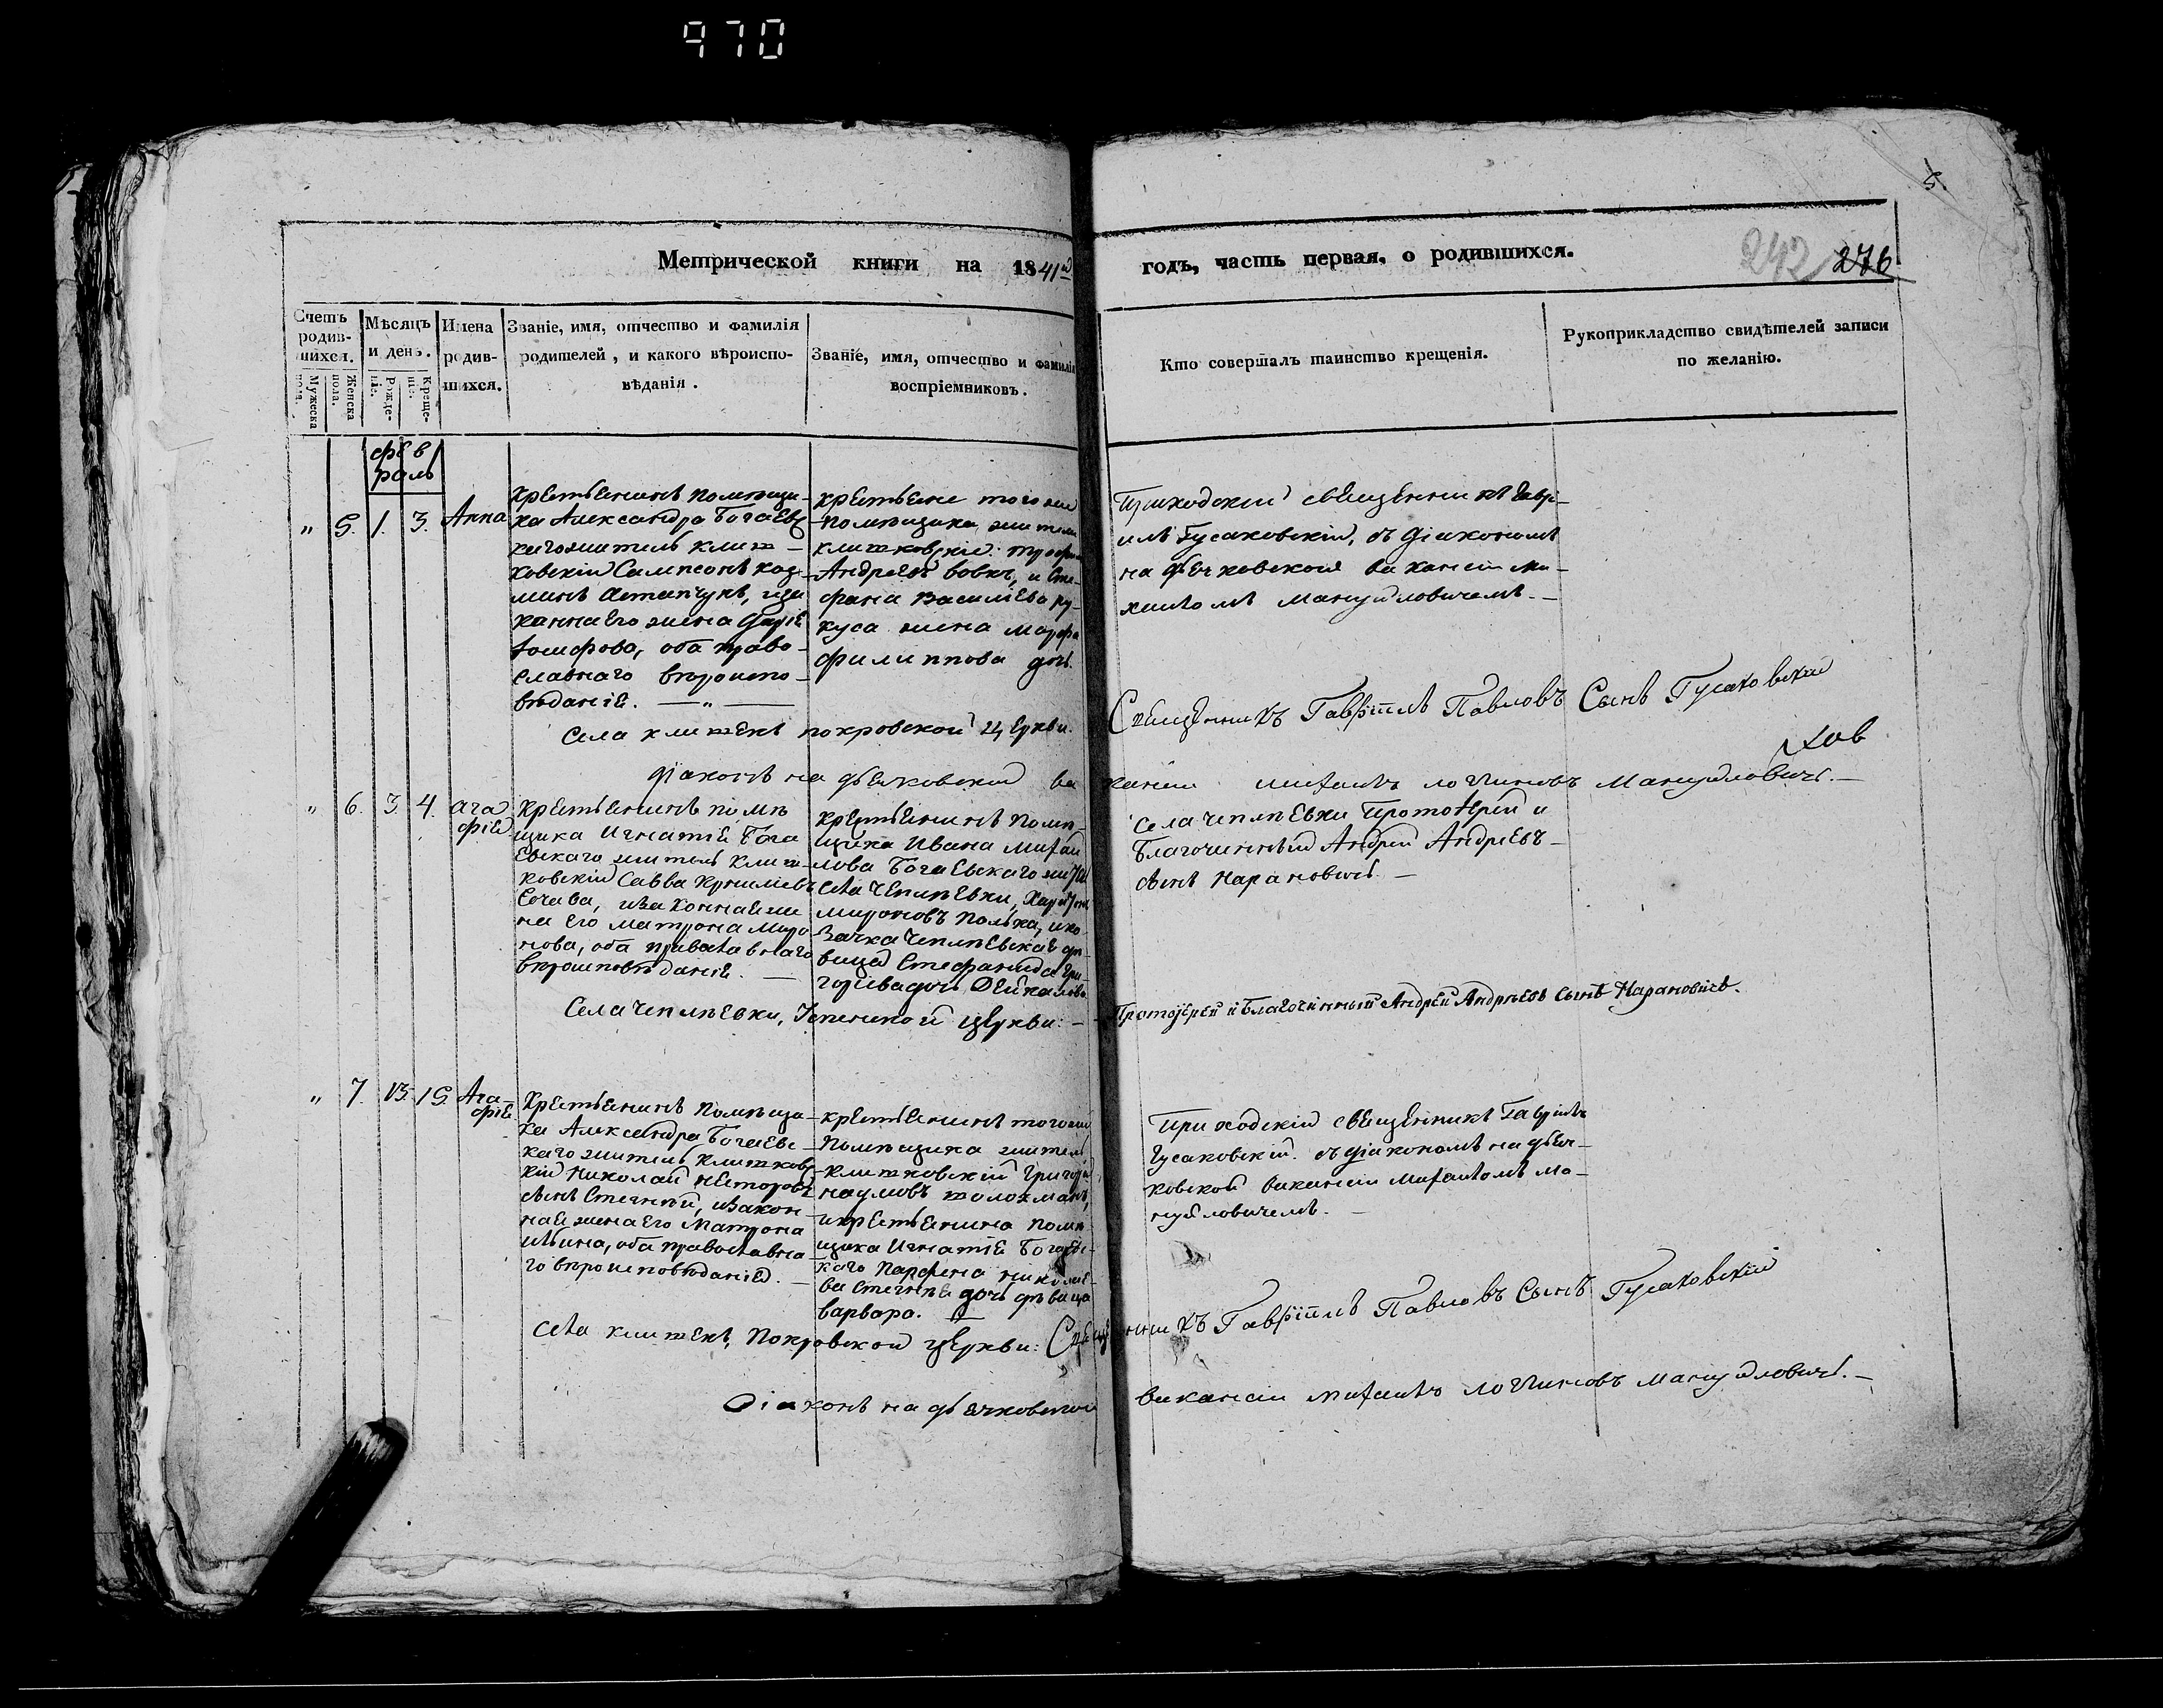 970
5.
Метрической книги на 1841й
годъ, часть первая, о родившихся.
242 276
Счетъ родив-шихся.
Мужеска пола.
Женска пола.
Мѣсяцъ и день.
Рожде-нія.
Креще-нія.
Имена родив-шихся.
Званіе, имя, отчество и фамилія
родителей, и какого вѣроиспо-
вѣданія.
Званіе, имя, отчество и фамилія
воспріемниковъ.
Кто совершалъ таинство крещенія.
Рукоприкладство свидѣтелей записи
по желанію.
фев
раль
" 5. 1. 3. Анна
Крестьянинъ помѣщи-
ка Александра Богаевс
каго житель клиш-
ковскій Сампсонъ Коз-
минъ Остапчукъ, иза
конная его жена Дарія
Іосифова, оба право-
славнаго вѣроиспо-
вѣданія. — " —
крестьяне того же
помѣщика жители
клишковскіе: Трофи
Андреевъ вовкъ, и Сте-
фана Василіева ку-
куса жена Марфа
филиппова дочь.
Приходскій священникъ Гаврі-
илъ Гусаковскій, съ діакономъ
на дьячковской ваканси ми-
хаиломъ Мануйловичемъ.-
Села клишекъ покровской церкви.
Священникъ Гавріилъ Павловъ Сынъ Гусаковскій
діаконъ на дьячковской ва
кансіи михаилъ логгиновъ Мануйловичь.-
" 6. 3. 4. Ага
фія
Крестьянинъ помѣ
щика Игнатія Бога
евскаго житель клиш-
ковскій Савва Корниліевъ
Сочава, изаконная же
на его матрона Миро
нова, оба православнаго
вѣроисповѣданія. —
крестьянинъ помѣ-
щика Ивана михаи
лова Богаевскаго жи
села Чеплѣевки,
мироновъ полька, ико
зачка чеплѣевская дѣ-
вица Стефанида Гри-
горіева дочь
села чеплѣевки Протоіерей и
Благочинный Андрей Андреевъ-
сынъ Нарановичь. —
Села Чеплѣевки, Успенской церкви: -
Протоіерей и Благочинный Андрей Андреевъ сынъ Нарановичь.
" 7. 13. 15. Ага-
фія.
Крестьянинъ помѣщи-
ка Александра Богаевс-
каго житель клишковс
кій Николай Несторовъ
сынъ Стегнѣй, изакон-
ная жена его Матрона
ильина, оба православна-
го вѣроисповѣданія. —
крестьянинъ того же
помѣщика житель
клишковскій Григорій
наумовъ толохманъ,
икрестьянина помѣ-
щика Игнатія Богаевс-
каго Парфена николае-
ва Стегнѣя дочь дѣвица
варвара.
Приходскій священникъ Гавріилъ
Гусаковскій. съ діакономъ на дьяч-
ковской вакансіи Михаиломъ Ма-
нуйловичемъ.
Села клишекъ, Покровской церкви: Священникъ Гавріилъ Павловъ Сынъ Гусаковскій
Діаконъ на дьячковской вакансіи михаилъ логгиновъ мануйловичь.-